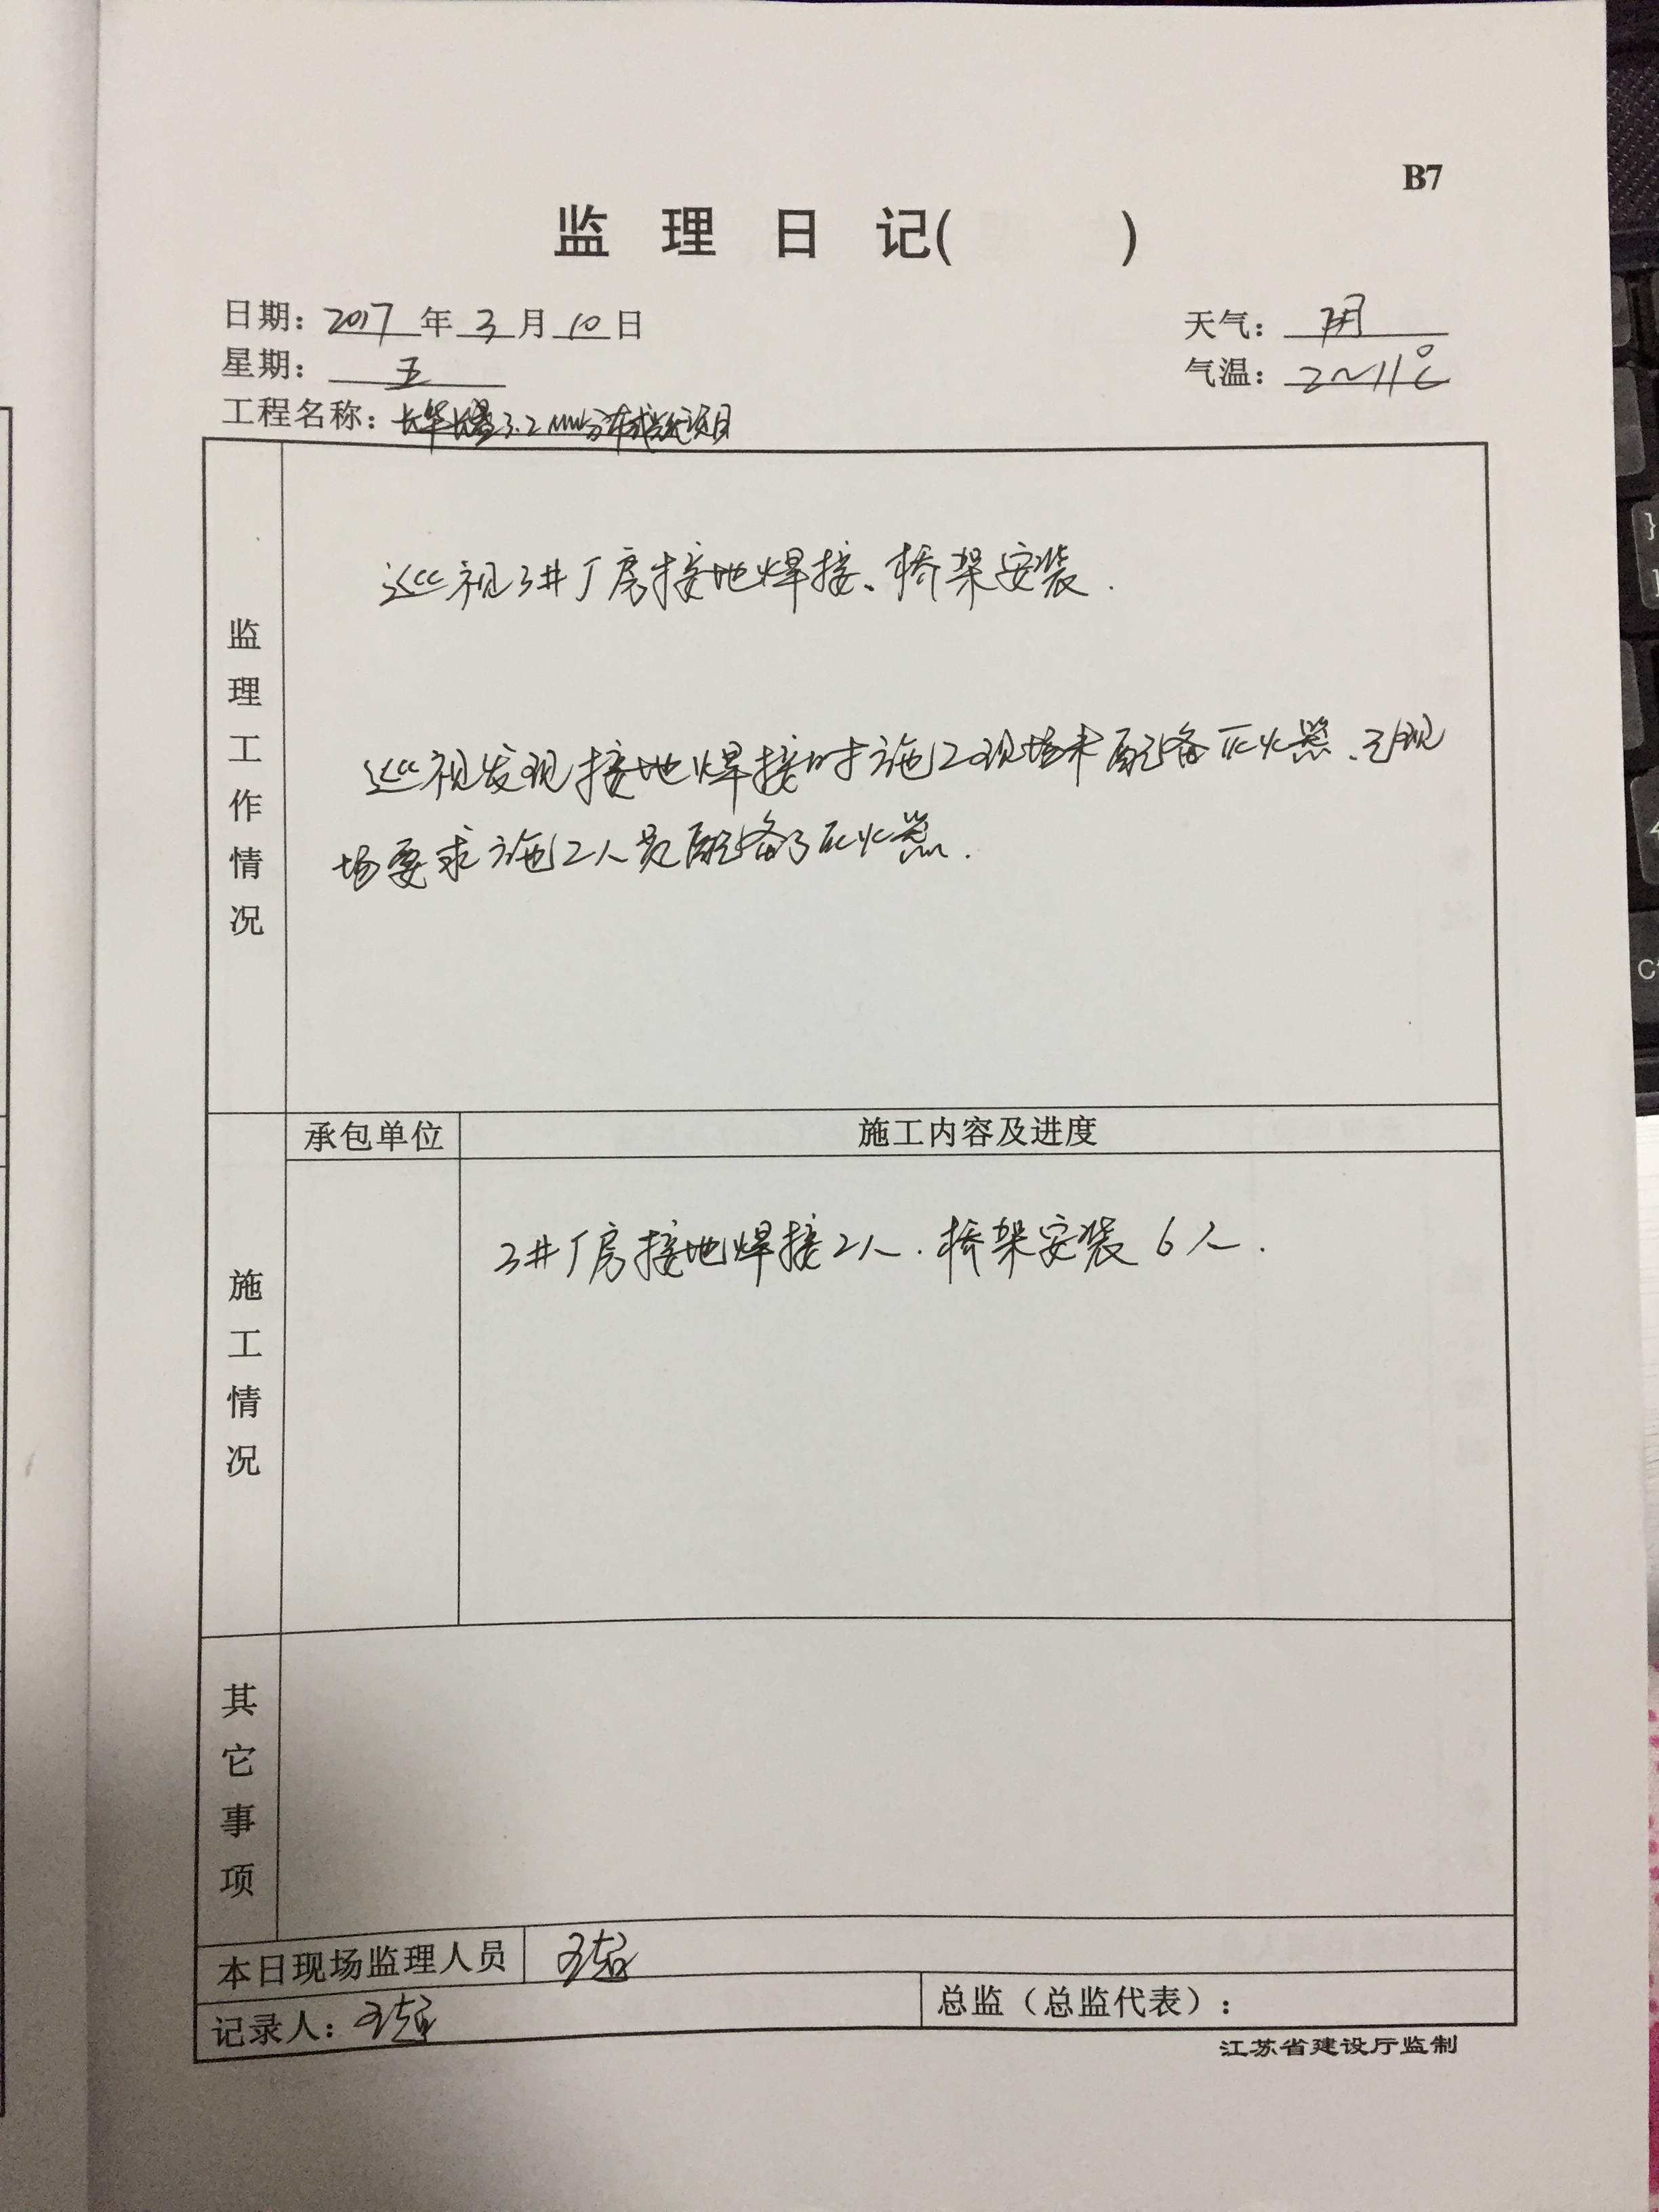 B7
监理日记( )
日期: 2017 年 3 月 10 日
天气: 阴
星期: 五
气温: 2~11℃
工程名称: 长华长盛3.2MW分布式光伏项目
监理工作情况
巡视3#厂房接地焊接、桥架安装.
巡视发现接地焊接时施工现场未配备灭火器、已现
场要求施工人员配备了灭火器.
承包单位
施工内容及进度
施工情况
3#厂房接地焊接2人.桥架安装6人.
其它事项
本日现场监理人员 王超
记录人: 王超
总监（总监代表）:
江苏省建设厅监制